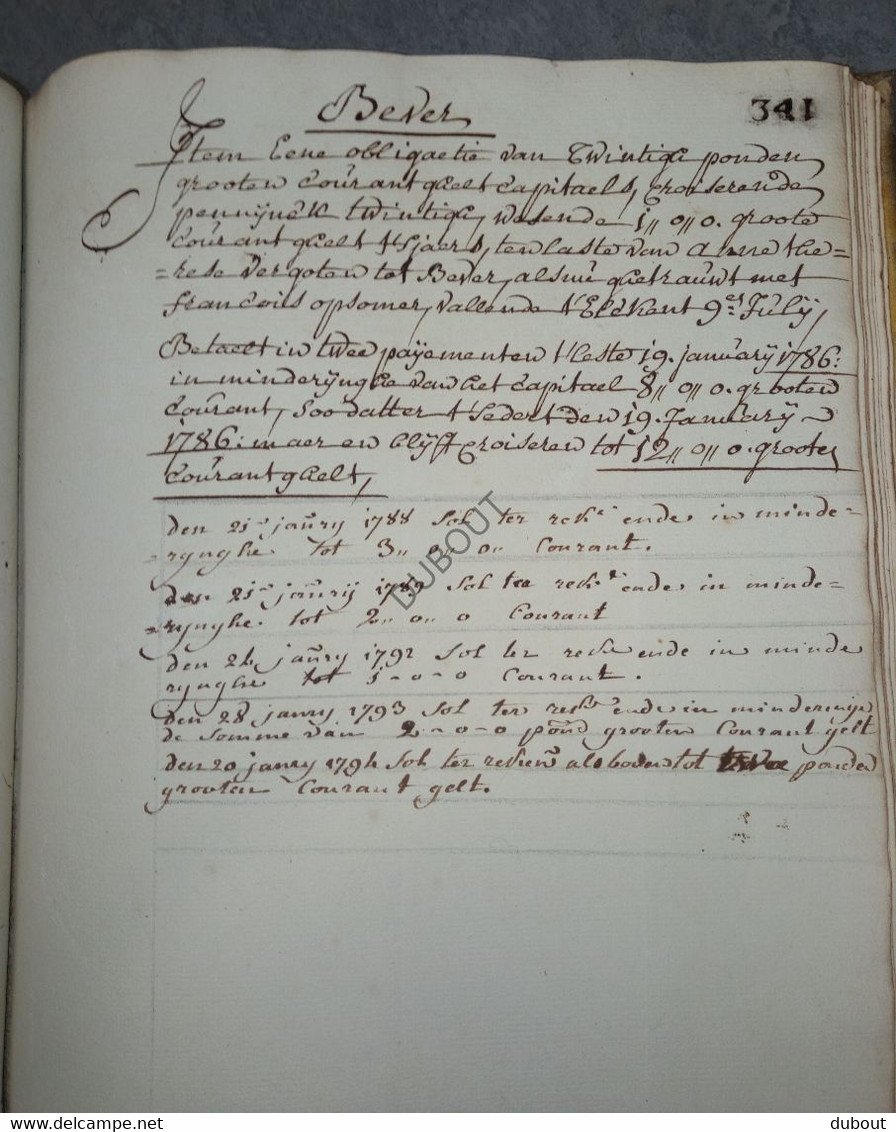 Bever
341
Item Eene obligaetie van Twintigh ponden
grooten courant ghelt capitaels, croiserende
pennijnck twintigh, wesende 1,, 0,, 0. groote
courant ghelt t'sjaers, ten laste van anne the=
=rese vergoten tot Bever, als nu ghetrauwt met
francois opsomer, vallende t'Elckent 9er Julij,
Betaelt in twee payementen t'leste 19. january 1786:
in minderijnghe van het capitael 8,, 0,, 0. grooten
courant, soo datter t'sedert den 19. January
1786: maer en blijft croiseren tot 12,, 0,, 0. groote
courant ghelt,
den 21en janry 1788 Sol ter reke ende in minde=
=rynghe tot 3,, 0,, 0,, Courant.
den 21en janrij 1789 Sol ter reke ende in minde=
=rijnghe tot 2,, 0,, 0 Courant
den 24 janry 1792 Sol ter reke ende in minde
rynghe tot 1-0-0 Courant.
den 28 janry 1793 Sol ter reke ende in minderinge
de Somme van 2-0-0 pond grooten Courant gelt
den 20 janry 1794 Sol ter reken als boven tot twee ponden
grooten Courant gelt.
DUBOUT
delcampe.net
dubout